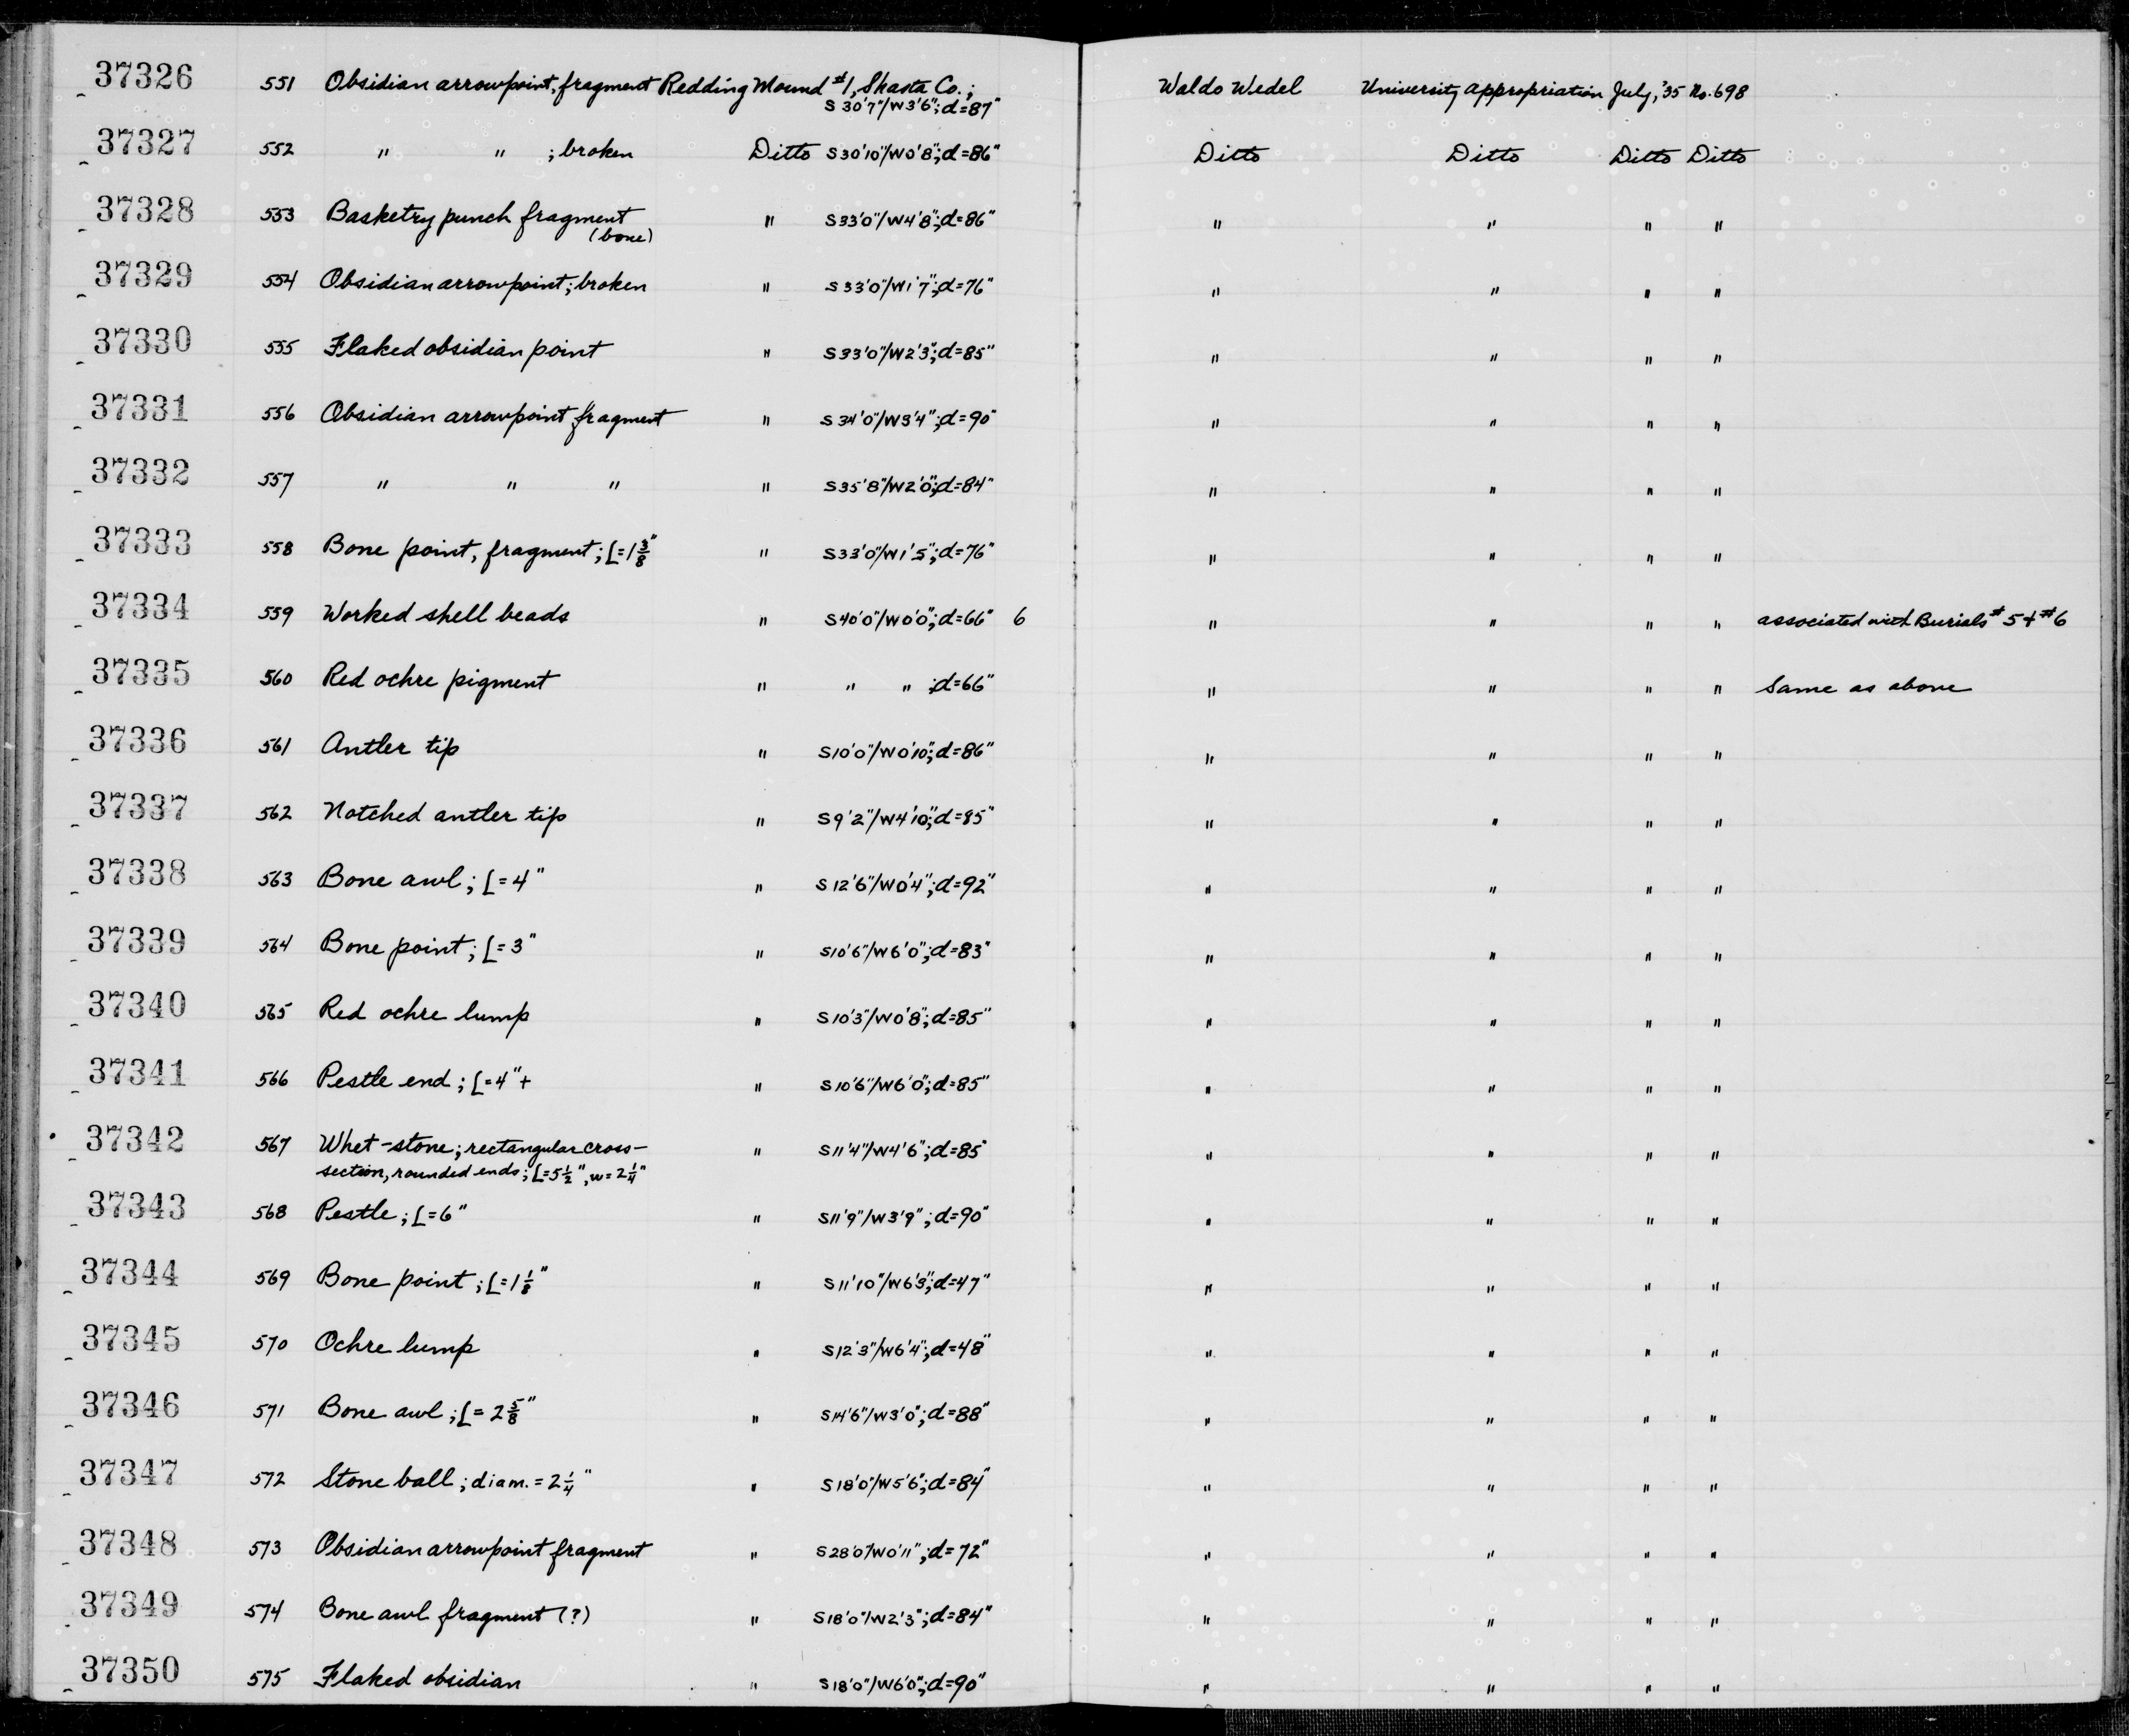 37326 551 Obsidian arrowpoint, fragment Redding Mound #1, Shasta Co.; Waldo Wedel University Appropriation July, '35 No. 698
S30'7"/W3'6"; d=87"
37327 552 " " ; broken Ditto S30'10"/W0'8"; d=86" Ditto Ditto Ditto Ditto
37328 553 Basketry punch fragment " S33'0"/W4'8"; d=86" " " " "
(bone)
37329 554 Obsidian arrowpoint; broken " S33'0"/W1'7"; d=76" " " " "
37330 555 Flaked obsidian point " S33'0"/W2'3"; d=85" " " " "
37331 556 Obsidian arrowpoint fragment " S34'0"/W3'4"; d=90" " " " "
37332 557 " " " " S35'8"/W2'0"; d=84" " " " "
37333 558 Bone point, fragment; L=1 3/8" " S33'0"/W1'5"; d=76" " " " "
37334 559 Worked shell beads " S40'0"/W0'0"; d=66" 6 " " " " associated with Burials #5 + #6
37335 560 Red ochre pigment " " " ; d=66" " " " " Same as above
37336 561 Antler tip " S10'0"/W0'10"; d=86" " " " "
37337 562 Notched antler tip " S9'2"/W4'10"; d=85" " " " "
37338 563 Bone awl; L=4" " S12'6"/W0'4"; d=92" " " " "
37339 564 Bone point; L=3" " S10'6"/W6'0"; d=83" " " " "
37340 565 Red ochre lump " S10'3"/W0'8"; d=85" " " " "
37341 566 Pestle end; L=4"+ " S10'6"/W6'0"; d=85" " " " "
37342 567 Whet-stone; rectangular cross- " S11'4"/W4'6"; d=85" " " " "
section, rounded ends; L=5 1/2", w=2 1/4"
37343 568 Pestle; L=6" " S11'9"/W3'9"; d=90" " " " "
37344 569 Bone point; L=1 1/8" " S11'10"/W6'3"; d=47" " " " "
37345 570 Ochre lump " S12'3"/W6'4"; d=48" " " " "
37346 571 Bone awl; L=2 5/8" " S14'6"/W3'0"; d=88" " " " "
37347 572 Stone ball; diam.=2 1/4" " S18'0"/W5'6"; d=84" " " " "
37348 573 Obsidian arrowpoint fragment " S28'0"/W0'11"; d=72" " " " "
37349 574 Bone awl fragment (?) " S18'0"/W2'3"; d=84" " " " "
37350 575 Flaked obsidian " S18'0"/W6'0"; d=90" " " " "